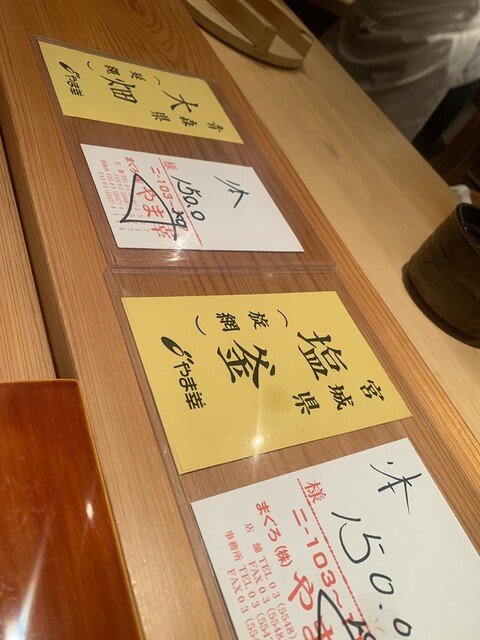 青森県
大畑
（延縄）
やま幸
様
150.0
ニ-103〜
まぐろ
やま幸
宮城県
塩釜
（旋網）
やま幸
本
様
150.0
ニ-103〜
まぐろ(株)やま
店舗 TEL 03 (5548
FAX 03 (5548
事務所 TEL 03 (554
FAX 03 (554